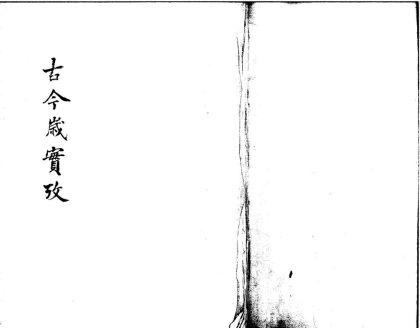 古今歲實攷